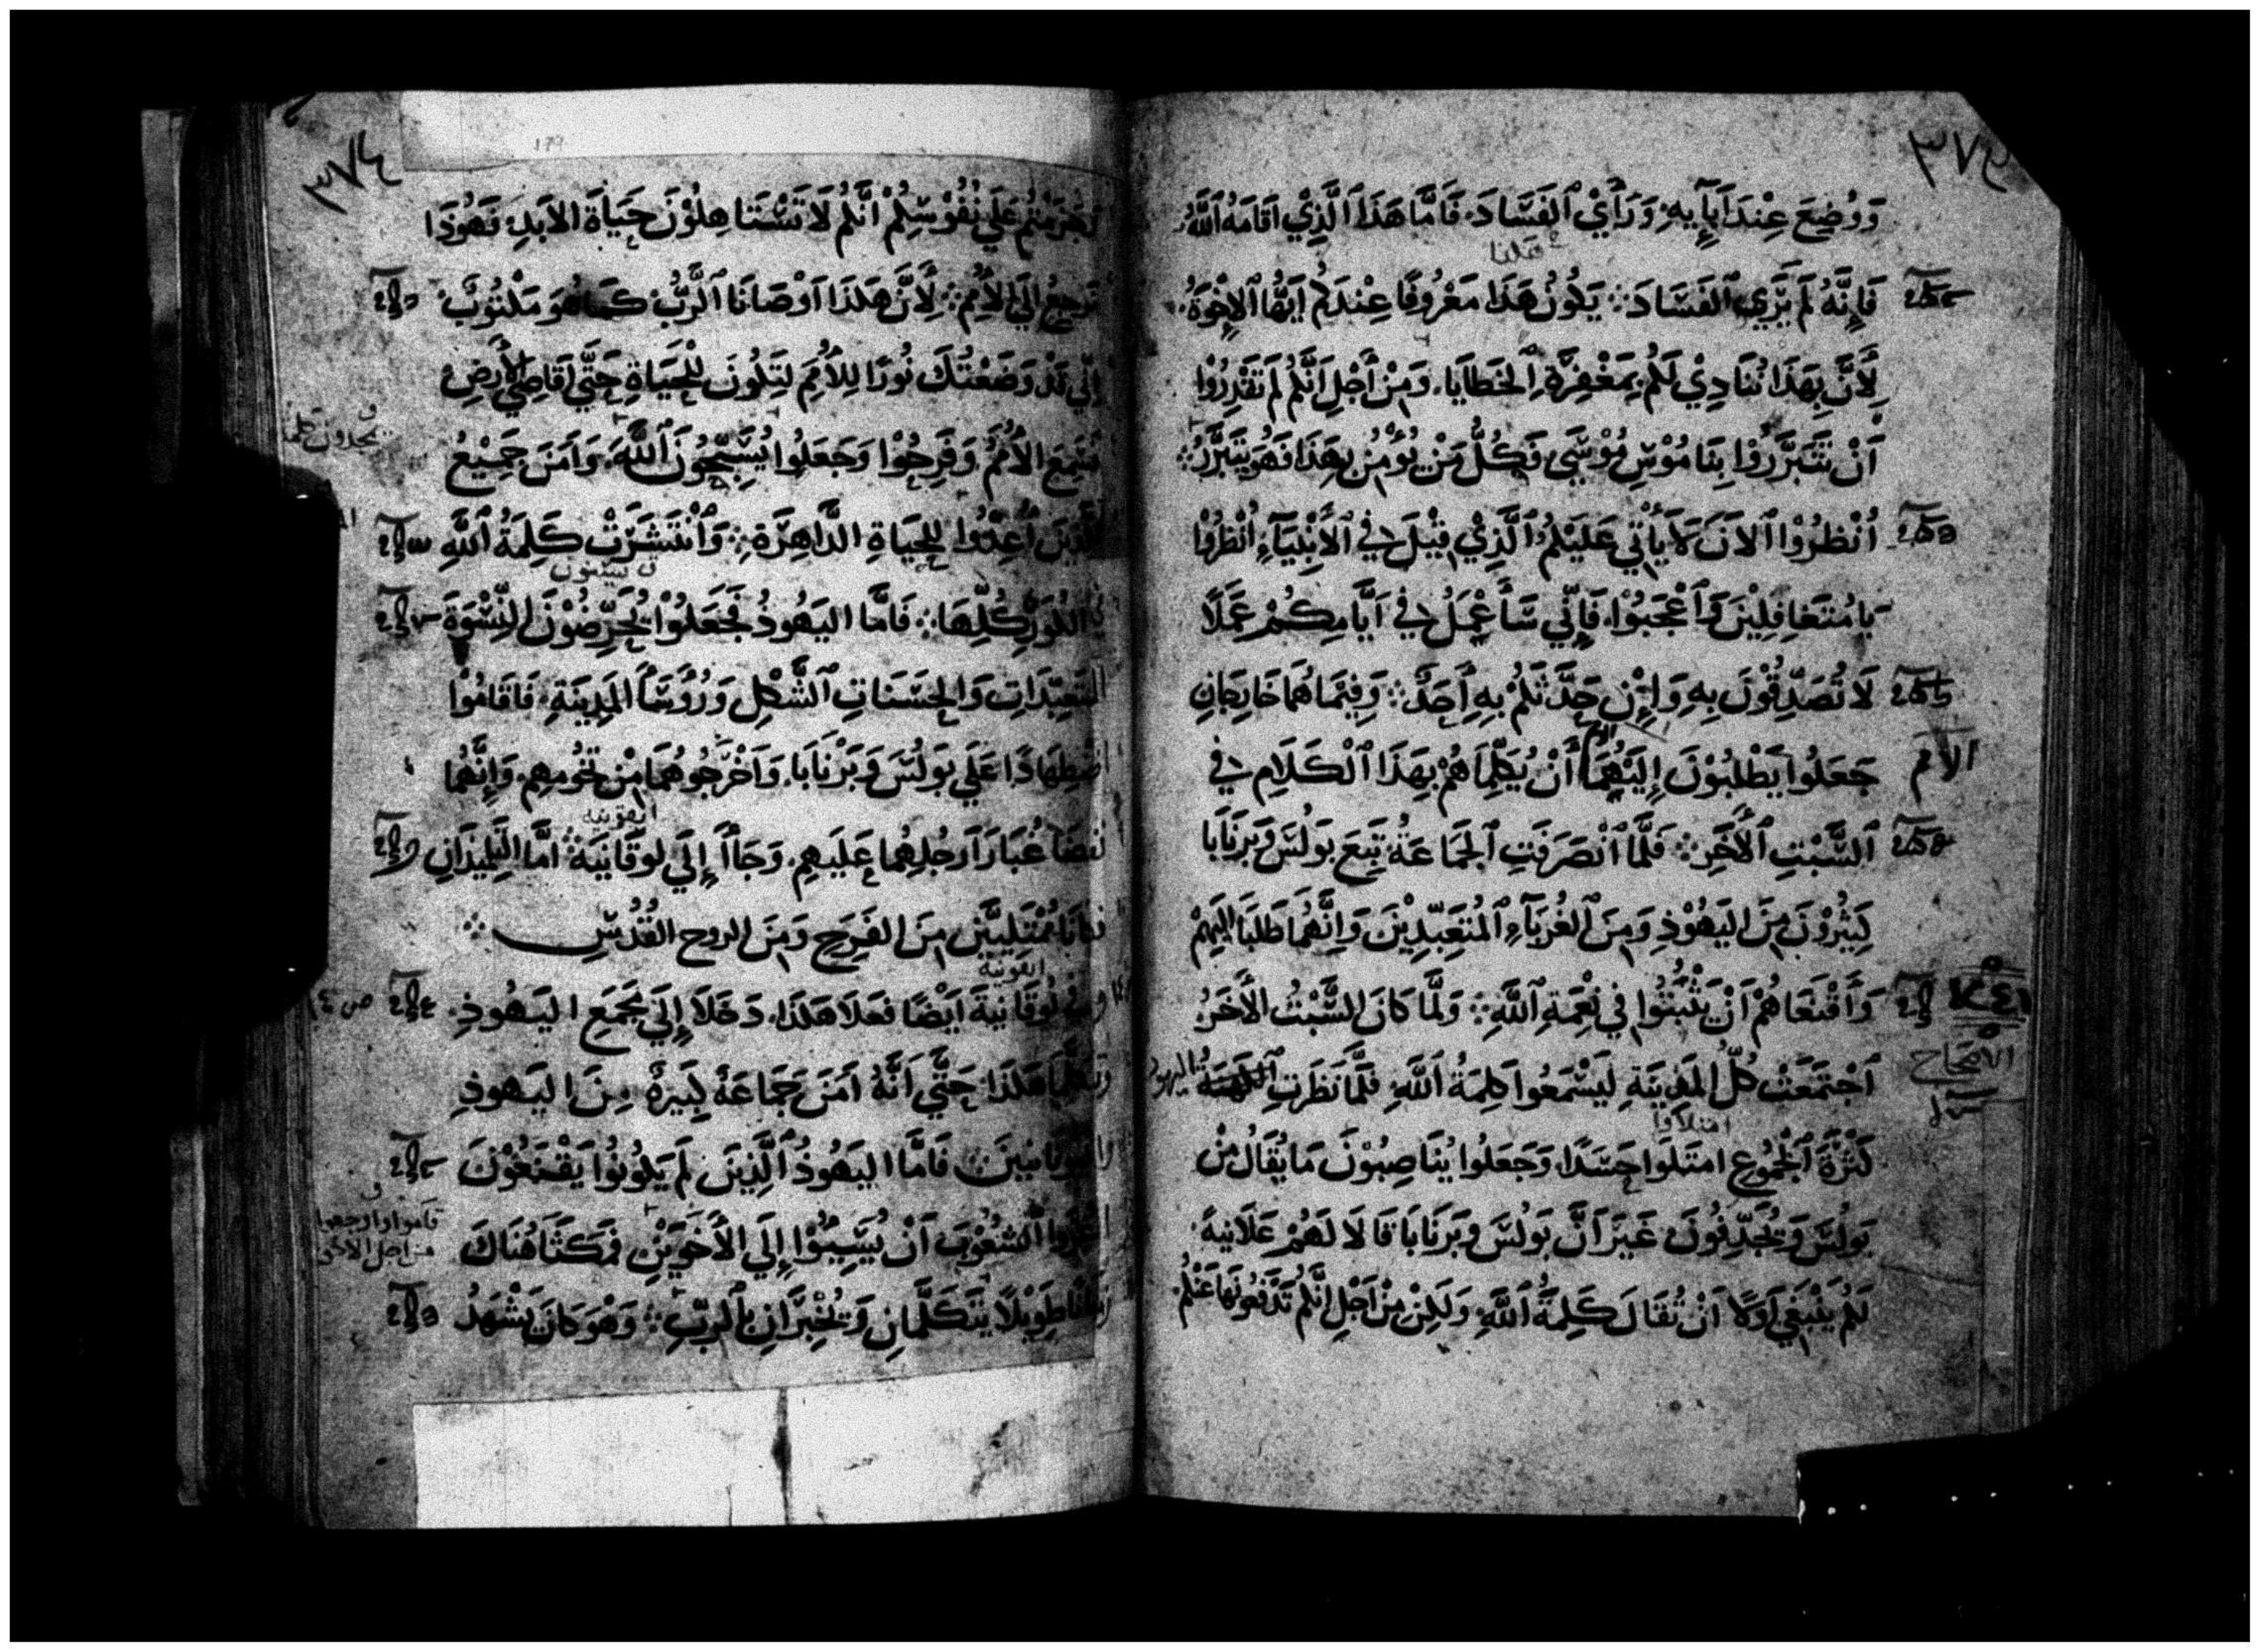 وَوُضِعَ عِنْدَ اَبَآيِهِ وَرَأَيْ ٱلفَسَادَ. فَاَمَّا هَذَا ٱلَّذِيْ اَقَامَهُ ٱللَّهُ
فَاِنَّهُ لَمْ يَرَي ٱلفَسَادَ ܀ يَكُونُ هَذَا مَعْرُوفًا عِنْدَكُمْ اَيُّهَا ٱلاِخْوَةُ
لِأَنَّ بِهَذَا نُنَادِيْ لَكُمْ بِمَغْفِرَةِ ٱلخَطَايَا. وَمِنْ أَجْلِ اَنَّكُمْ لَمْ تَقْدِرُوْا
اَنْ تَتَبَرَّرُوْا بِنَامُوْسِ مُوْسَي فَكُلُّ مَنْ يُؤْمِنُ بِهَذَا فَهُوَ يَتَبَرَّرُ ܀
اُنْظُرُوْا ٱلاَنَ لَا يَأْتِي عَلَيْكُمُ ٱلَّذِيْ قِيْلَ فِي ٱلأَنْبِيَآءِ اُنْظُرُوْا
يَا مُتَغَافِلِيْنَ وَٱعْجَبُوْا. فَاِنِّي سَأَعْمَلُ فِي اَيَّامِكُمْ عَمَلًا
لَا تُصَدِّقُوْنَ بِهِ وَاِنْ حَدَّثَكُمْ بِهِ أَحَدٌ ܀ وَفِيمَا هُمَا خَارِجَانِ
الأمم
جَعَلُوا يَطْلُبُوْنَ إِلَيْهِمَا أَنْ يُكَلِّمَاهُمْ بِهَذَا ٱلْكَلَامِ فِي
ٱلسَّبْتِ ٱلأَخَرِ ܀ فَلَمَّا ٱنْصَرَفَتِ ٱلجَمَاعَةُ تَبِعَ بَولُسَ وَبَرْنَابَا
كَثِيْرُوْنَ مِنَ اليَهُوْدِ وَمِنَ ٱلغُرَبَآءِ ٱلمُتَعَبِّدِيْنَ وَاِنَّهُمَا طَلَبَا اِلَيْهِمْ
وَأَقْنَعَاهُمْ اَنْ يَثْبُتُوا فِي نِعْمَةِ ٱللَّهِ ܀ وَلَمَّا كَانَ السَّبْتُ الأَخَرُ
ٱجْتَمَعَتْ كُلُّ المَدِيْنَةِ لِيَسْمَعُوا كَلِمَةُ ٱللَّهِ فَلَمَّا نَظَرَتِ اليهود
امتلاوا
كَثْرَةَ ٱلجُمُوعِ امتَلَوا حَسَدًا. وَجَعَلُوا يُنَاصِبُوْنَ مَا يُقَالُ مِنْ
بَولُسَ وَيُجَدِّفُونَ غَيْرَ اَنَّ بَولُسَ وَبَرْنَابَا قَالَا لَهُمْ عَلَانِيَةً
لَكُمْ يَنْبَغِي اَوَلًا اَنْ تُقَالَ كَلِمَةُ ٱللَّهِ وَلَكِنْ مِنْ اَجْلِ اِنَّكُمْ تَدْفَعُونَهَا عَنْكُمْ
٣٧٤
179
عَلَي نُفُوْسِكُمْ اَنَّكُمْ لَا تَسْتَاهِلُوْنَ حَيَاةَ الاَبَدِ فَهُوَذَا
نَرْجِعُ اِلَي الأُمَمِ ܀ لِأَنَّ هَكَذَا اَوْصَانَا ٱلرَّبُّ كَمَا هُوَ مَكْتُوْبٌ
اِنِّي قَدْ وَضَعْتُكَ نُورًا لِلأُمَمِ لِتَكُونَ لِلْحَيَاةِ حَتَّي اَقَاصِي الأَرضِ
الأُمَمُ وَفَرِحُوْا وَجَعَلُوا يُسَبِّحُونَ ٱللَّهَ. وَاَمَنَ جَمِيْعُ
الَّذِيْنَ اُعِدُّوا لِلحَيَاةِ الدَّاهِرَةِ ܀ وَٱنْتَشَرَتْ كَلِمَةُ ٱللَّهِ
فِي الكُوَرِ كُلِّهَا ܀ فَاَمَّا اليَهُوذُ فَجَعَلُوْا يُحَرِّضُوْنَ النِّسْوَةَ
المتَعَبِّدَاتِ وَالحَسَنَاتِ ٱلشَّكْلِ وَرُؤَسَآ المَدِيْنَةِ. فَاَقَامُوْا
اضْطِهَادًا عَلَي بَولُسَ وَبَرْنَابَا. وَاَخْرَجُوهُمَا مِنْ تُخُومِهِم. وَاِنَّهُمَا
ايقونيه
نَفَضَا غُبَارَ اَرجُلِهِمَا عَلَيهِم. وَجَاأَ إِلَي لوقَانِيَةَ ܀ اَمَّا التَّلِيذَانِ
فَكَانَا مُمْتَلِيَيْنِ مِنَ الفَرَحِ وَمِنَ الروحِ القُدُسِ ܀
ايقونية
لُوقَانِيَةَ اَيْضًا فَعَلَا هَكَذَا. دَخَلَا إِلَي مَجْمَعِ اليَهُوذِ.
هَكَذَا حَتَّي اَنَّهُ اَمَنَ جَمَاعَةً كَبِيْرَةً مِنَ اليَهوذِ
فَاَمَّا اليَهُوذُ ٱلَّذِيْنَ لَمْ يَكُونُوا يَقْنَعُوْنَ
ٱلشُعُوْبَ اَنْ يُسِيئُوْا إِلَي الأَخَوَيْنِ فَمَكَثَا هُنَاكَ
زَمَانًا طَوِيْلًا يَتَكَلَّمَانِ وَيُخْبِرَانِ بِٱلرَّبِّ ܀ وَهُوَ كَانَ يَشْهَدُ